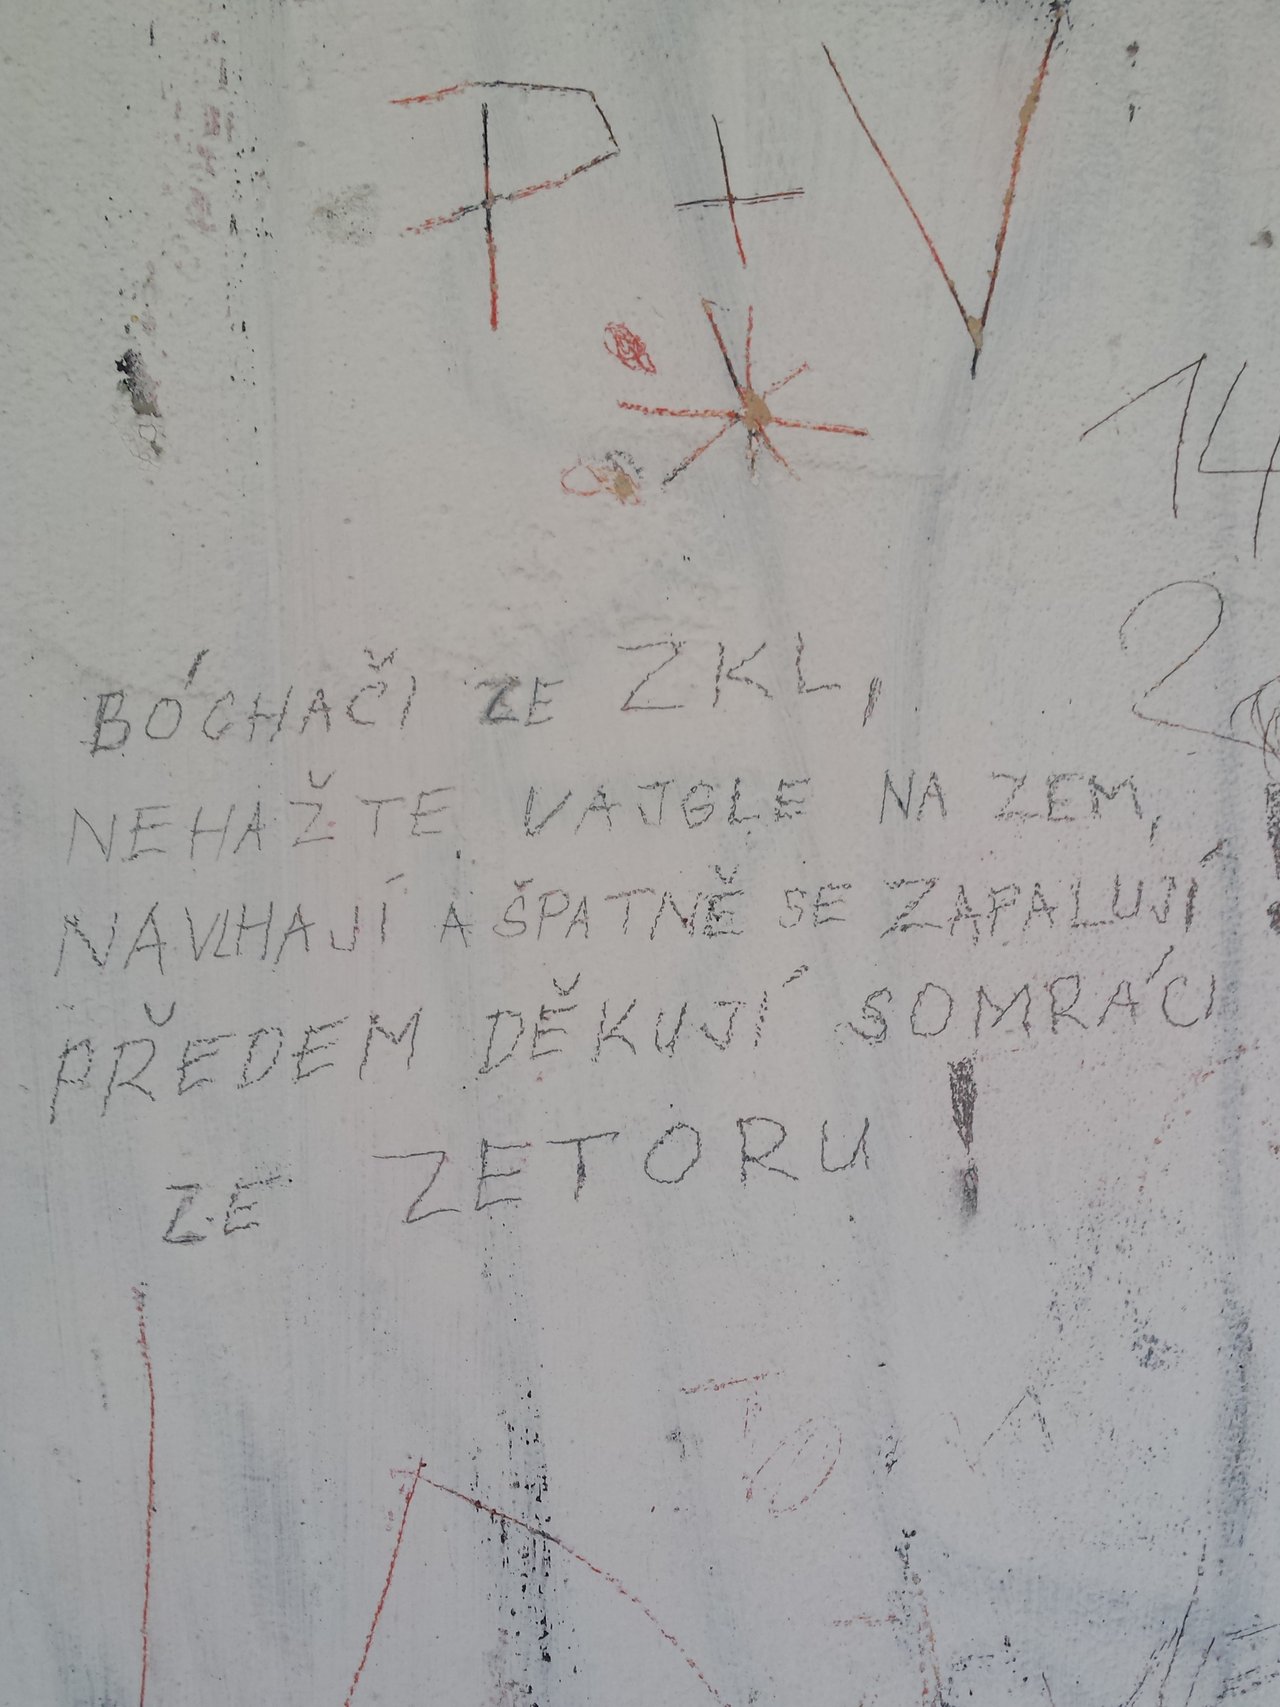 P+V
14
2
BÓCHAČI ZE ZKL,
NEHAŽTE VAJGLE NA ZEM,
NAVLHAJÍ A ŠPATNĚ SE ZAPALUJÍ
PŘEDEM DĚKUJÍ SOMRÁCI
ZE ZETORU!